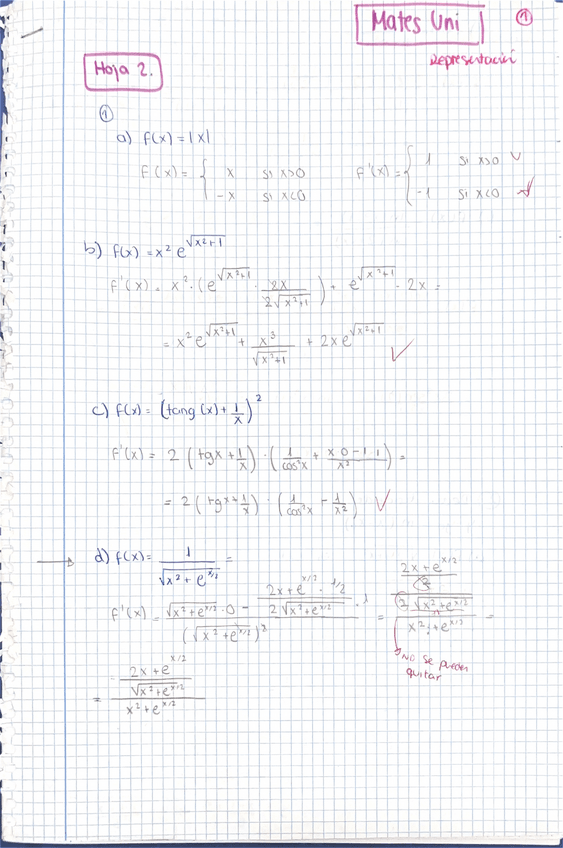 Mates Uni
①
Representación
Hoja 2.
①
a) f(x) = |x|
f(x) = { x si x>0
-x si x<0
f'(x) = { 1 si x>0 ✓
-1 si x<0
b) f(x) = x² e^√(x²+1)
f'(x) = x² · (e^√(x²+1) · 2x/(2√(x²+1))) + e^√(x²+1) · 2x =
= x² e^√(x²+1) + x³/√(x²+1) + 2x e^√(x²+1) ✓
c) f(x) = (tang(x) + 1/x)²
f'(x) = 2 (tgx + 1/x) · (1/cos²x + (x·0 - 1·1)/x²) =
= 2 (tgx + 1/x) · (1/cos²x - 1/x²) ✓
→ d) f(x) = 1/√(x² + e^(x/2)) =
f'(x) = (√(x²+e^(x/2)) · 0 - (2x+e^(x/2) · 1/2)/(2√(x²+e^(x/2))) · 1)/(√(x²+e^(x/2)))² = (((2x+e^(x/2))/2)/(2√(x²+e^(x/2))))/(x²+e^(x/2)) =
NO se pueden
quitar
= ((2x+e^(x/2))/√(x²+e^(x/2)))/(x²+e^(x/2))